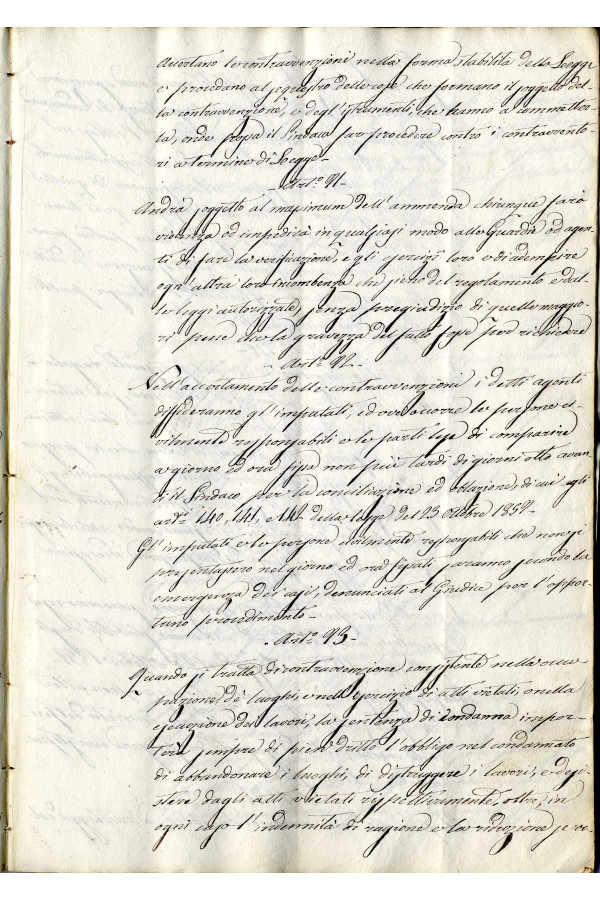 accertano le contravvenzioni nella forma stabilita della Legge
e procedano al sequestro delle cose che formano il soggetto del-
la contravvenzione, e degl'istrumenti, che hanno a commetter-
la, onde possa il Sindaco far procedere contro i contravvento-
ri a termine di Legge-
- Art.° 91.-
Andrà soggetto al maximum dell'ammenda chiunque farà
violenza od impedirà in qualsiasi modo alle Guardie od agen-
ti di fare la verificazione, e gli servizi loro e di adempiere
ogn'altra loro incombenza che sieno del regolamento e dal-
le leggi autorizzate, senza pregiudizio di quelle maggio-
ri pene che la gravezza del fatto fosse per richiedere
- Art.° 92.-
Nell'accertamento delle contravvenzioni i detti agenti
diffideranno gl'imputati, ed ove occorre le persone ci-
vilmente responsabili e le parti lese di comparire
a giorno ed ora fissa non più tardi di giorni otto avan-
ti il Sindaco per la conciliazione ed oblazione, di cui agli
art.i 140, 141, e 142 della legge del 23 Ottobre 1859-
Gl'imputati e le persone civilmente responsabili che non si
presentassero nel giorno ed ora fissati saranno secondo la
emergenza dei casi, denunciati al Giudice per l'oppor-
tuno procedimento-
- Art.° 93-
Quando si tratta di contravvenzione consistente nella occu-
pazione de' luoghi, e nell'esercizio di atti vietati, o nella
esecuzione dei lavori, la sentenza di condanna impor-
terà sempre di pien dritto l'obbligo nel condannato
di abbandonare i luoghi, di distruggere i lavori, e desi-
stere dagli atti vietati rispettivamente, oltre, in
ogni caso l'indennità di ragione e la